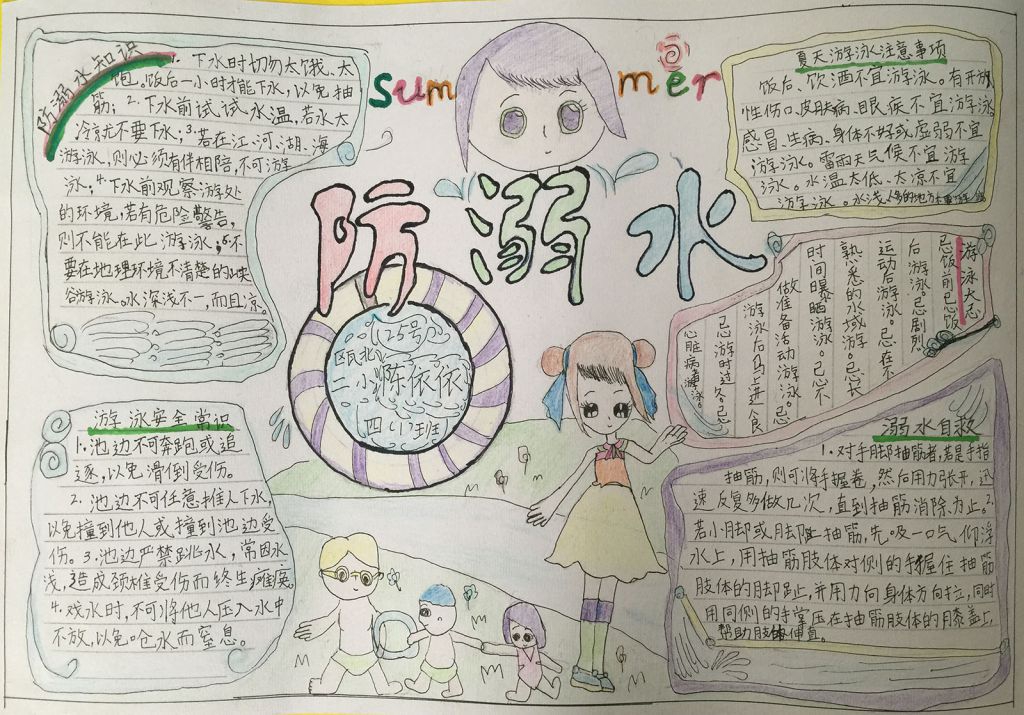 防溺水知识
1. 下水时切勿太饿、太
饱。饭后一小时才能下水,以免抽
筋;2.下水前试试水温,若水太
冷就不要下水;3.若在江、河、湖、海
游泳,则必须有伴相陪,不可游
泳;4.下水前观察游处
的环境,若有危险警告,
则不能在此游泳;5.不
要在地理环境不清楚的峡
谷游泳。水深浅不一,而且凉。
summer
防溺水
(25号)
区北
二小陈依依
四(1)班
夏天游泳注意事项
饭后、饮酒不宜游泳。有开放
性伤口、皮肤病、眼疾不宜游泳
感冒、生病、身体不好或虚弱不宜
游泳。雷雨天气候不宜游
泳。水温太低、太凉不宜
游泳。水浅、人多的地方
游泳大忌
忌饭前忌饭
后游泳。忌剧烈
运动后游泳。忌在不
熟悉的水域游。忌长
时间曝晒游泳。忌不
做准备活动游泳。忌
游泳后马上进食
忌游时过久。忌
心脏病者游泳。
游泳安全常识
1.池边不可奔跑或追
逐,以免滑倒受伤。
2.池边不可任意推人下水,
以免撞到他人或撞到池边受
伤。3.池边严禁跳水,常因水
浅,造成颈椎受伤而终生瘫痪。
4.戏水时,不可将他人压入水中
不放,以免呛水而窒息。
溺水自救
1.对手脚抽筋者,若是手指
抽筋,则可将手握拳,然后用力张开,迅
速反复多做几次,直到抽筋消除为止。2.
若小脚或脚趾抽筋,先吸一口气仰浮
水上,用抽筋肢体对侧的手握住抽筋
肢体的脚趾,并用力向身体方向拉,同时
用同侧的手掌压在抽筋肢体的膝盖上,
帮助肢体伸直。